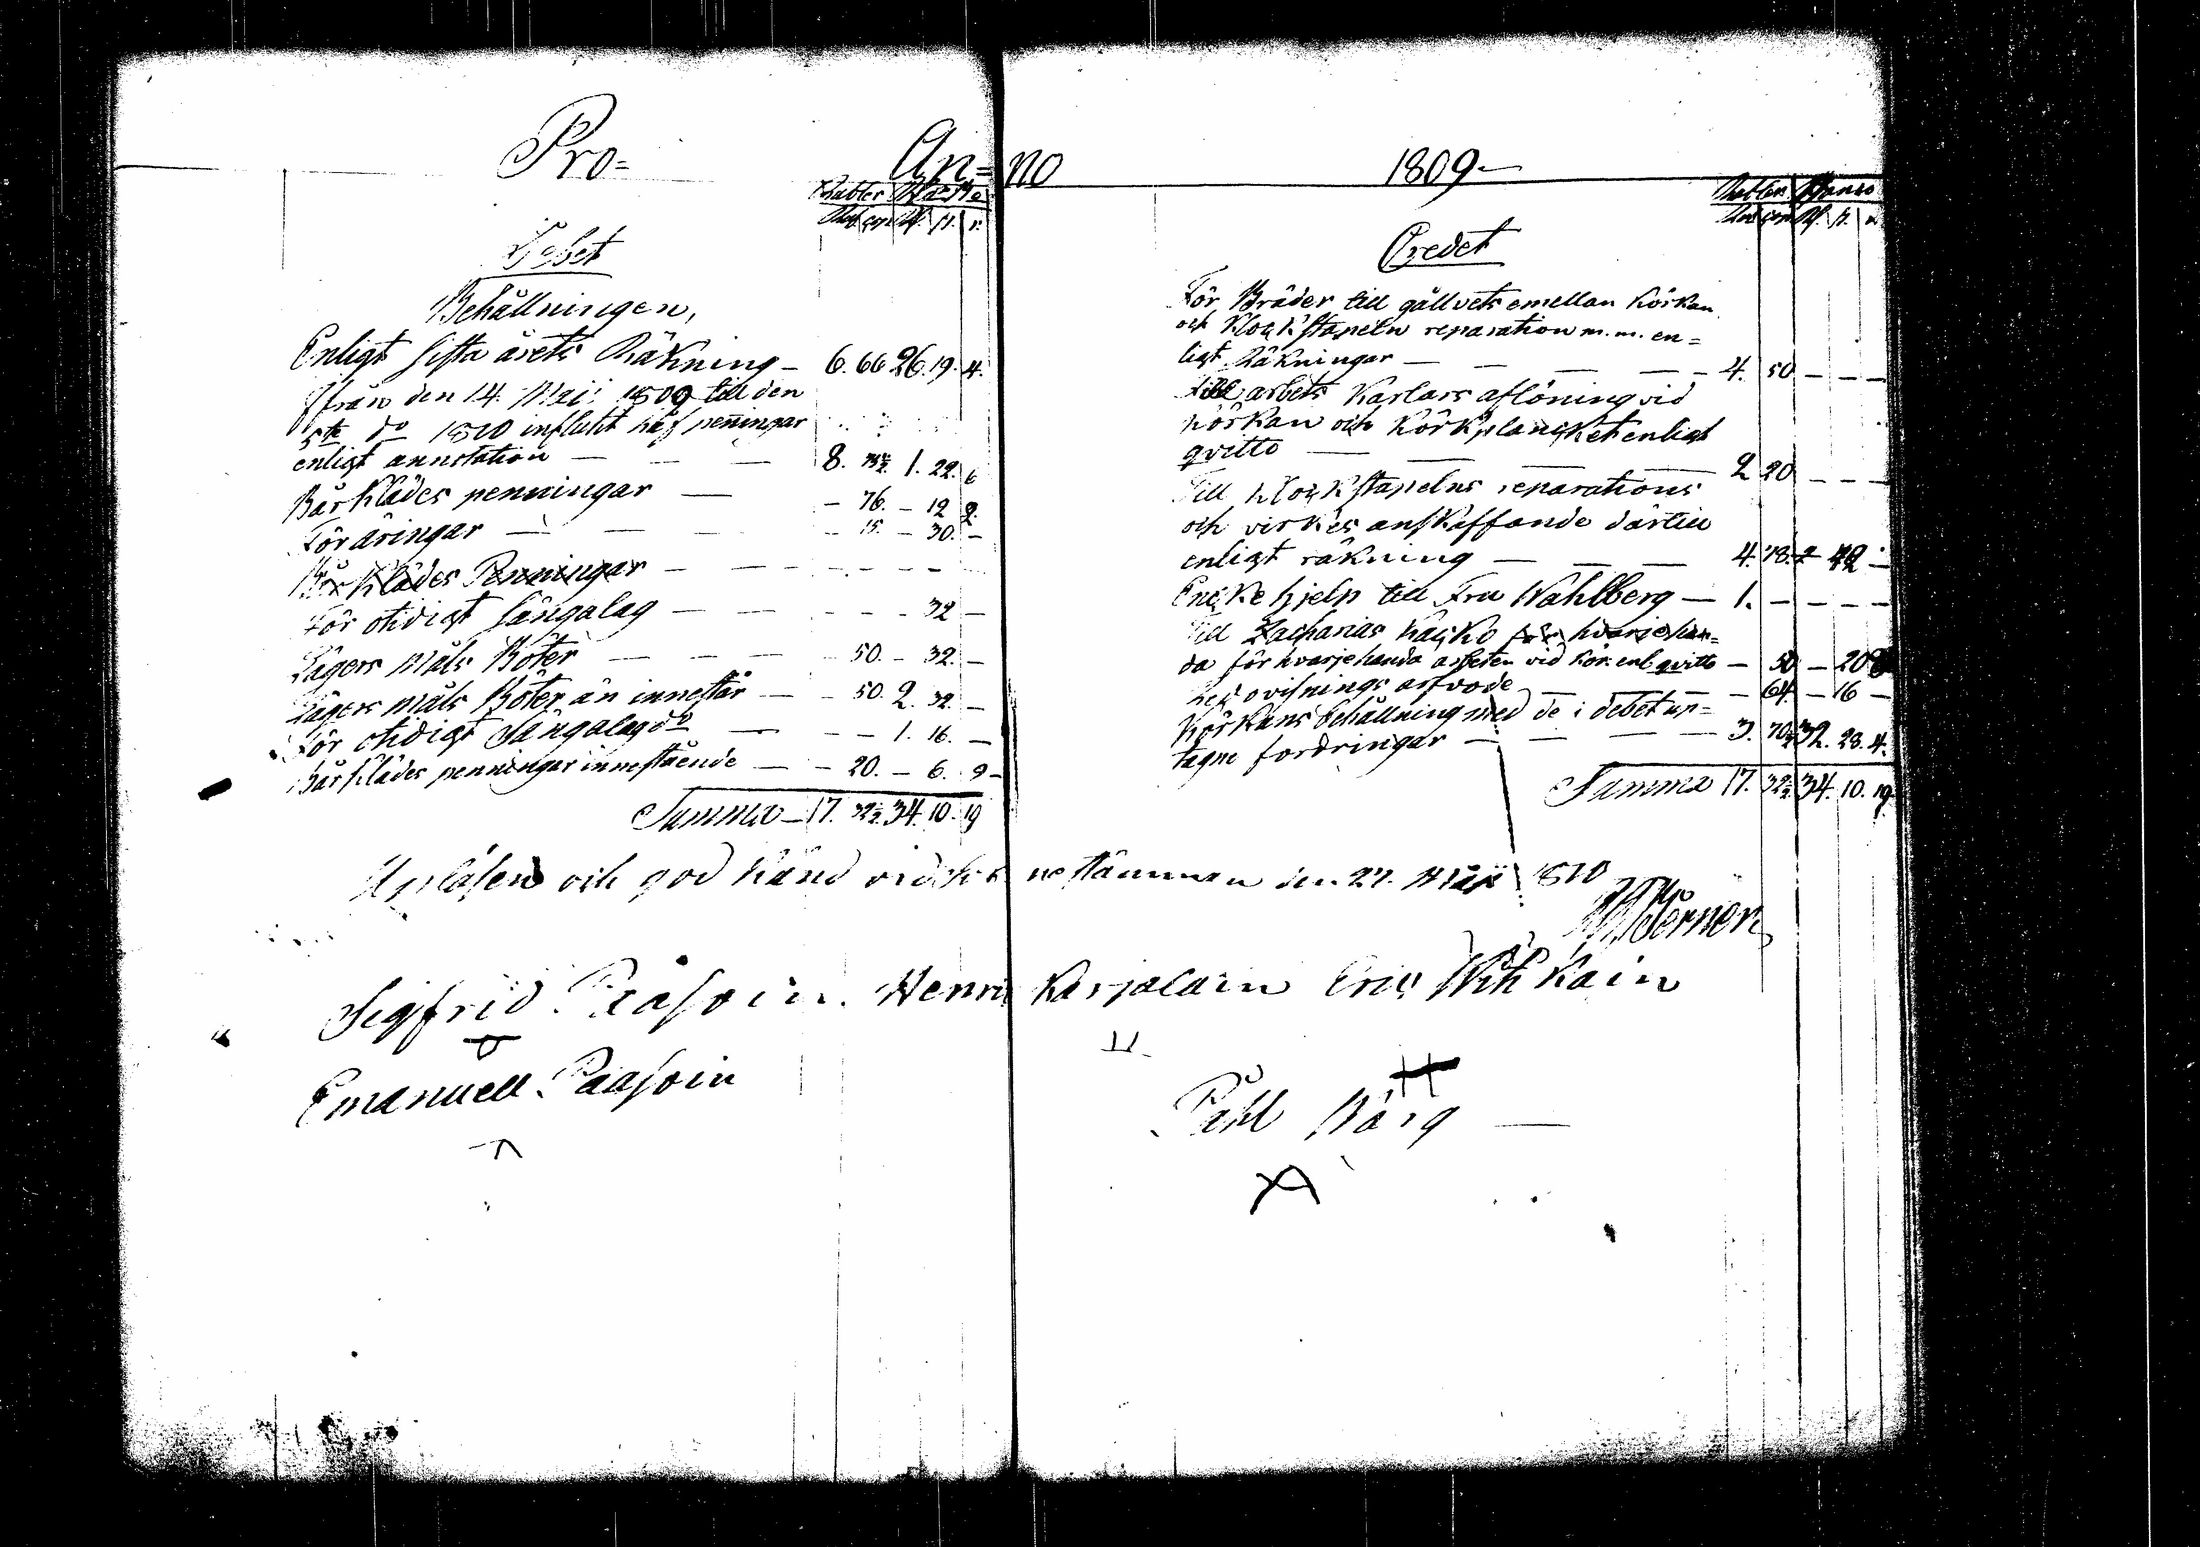 Pro= An=no 1809.—
Debet
Behållningen,
Enligt sista årets Räkning — 6. 66 26. 19. 4.
från den 14. Maji 1809 till den
5te do 1810 influtit håf penningar
enligt annotation — — — 8. 1. 22. 6
Bår Klädes penningar — — 76. — 12 2.
Föräringar — — — — 15. — 30. —
Bår Klädes Penningar — — — — — —
För otidigt sängalag — — — — — 32 —
Lägers måls Böter — — — — 50. — 32. —
Lägers måls Böter än innestår — — 50. 2. 32. —
För otidigt Sängalag do — — — 1. 16. —
Bår Klädes penningar innestående — — 20. — 6. 9 —
Summa — 17. 32½. 34. 10. 19
Credet
För Bräder till gållvets emellan Körkan
och Klockstapeln reparation m. m. en=
ligt Räkningar — — — — 4. 50 — — —
Till arbets Karlars aflöning vid
Körkan och Körkplancket enligt
qvitto — — — — 2 20 — — —
Till Klockstapelns reparations
och virkes anskaffande därtill
enligt räkning — — — 4. 78. 42 —
Encke hjelp till Fru Wahlberg — 1. — — — —
Till Zacharias Häcko för hvarjehan=
da för hvarjehanda arbeten vid Kör. enl. qvitto — 50 — 20
arfvode — — — — 64. — 16 —
Körkans behållning med de i debet up=
tagne fordringar — — — — 3. 70½ 32. 28. 4.
Summa 17. 32½ 34. 10. 19.
Uplåsen och god känd vid Sockne stämman den 27. Maji 1810
Sigfrid Paasoin. Henric Karjalain Eric Wihkain
Emanuell Paasoin
Påhl Bärg —